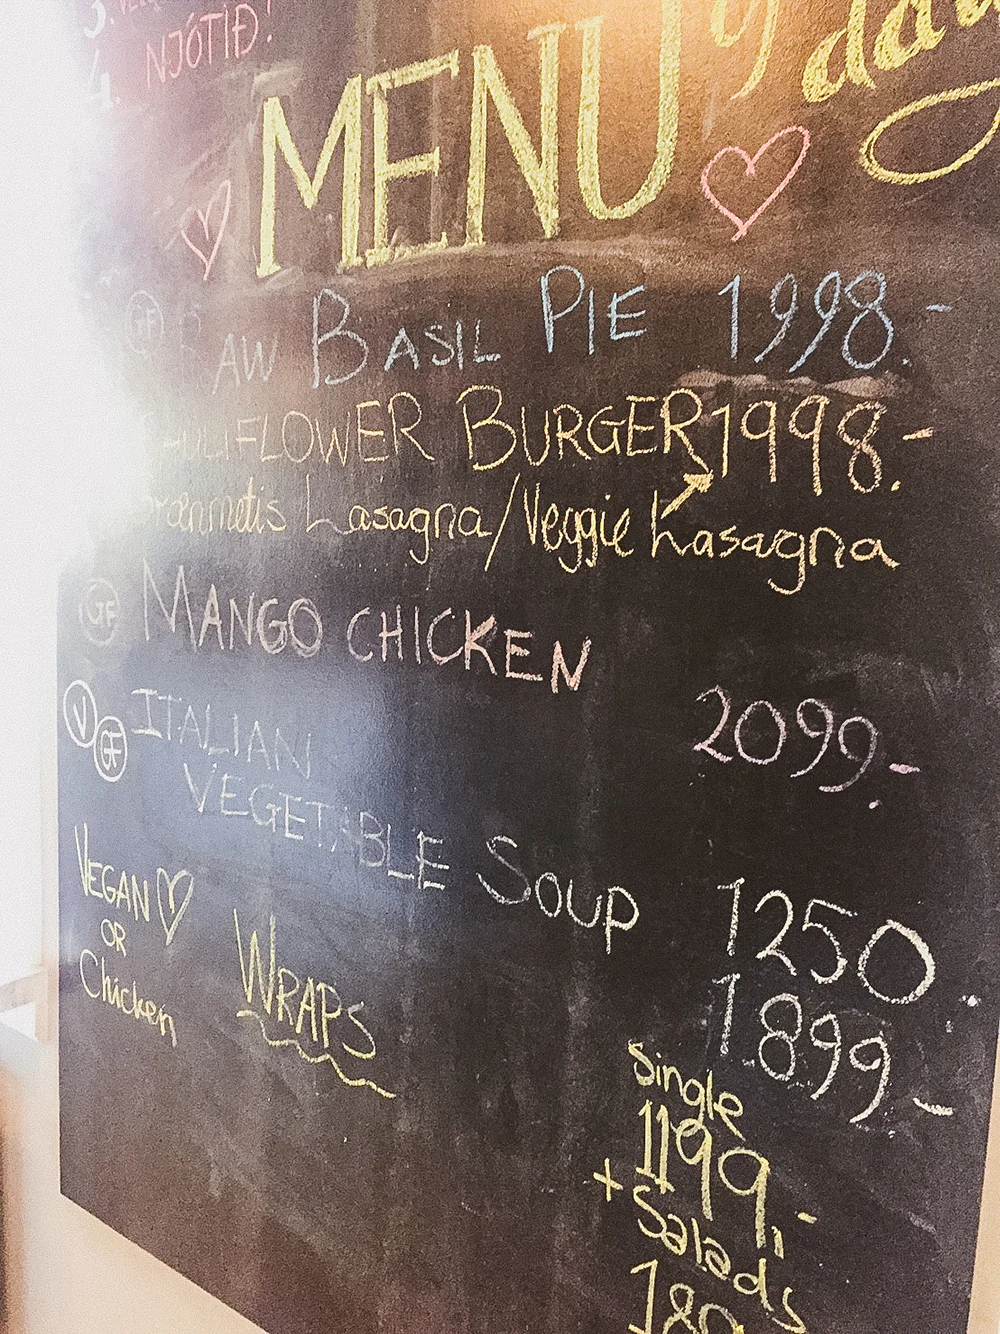 4. NJÓTIÐ!
MENU of day
GF RAW BASIL PIE 1998.-
CAULIFLOWER BURGER 1998.-
Grænmetis Lasagna/Veggie Lasagna
GF MANGO CHICKEN
2099.-
V GF ITALIAN
VEGETABLE SOUP 1250.-
VEGAN
OR
Chicken
WRAPS 1899.-
Single
1199.-
+ Salads